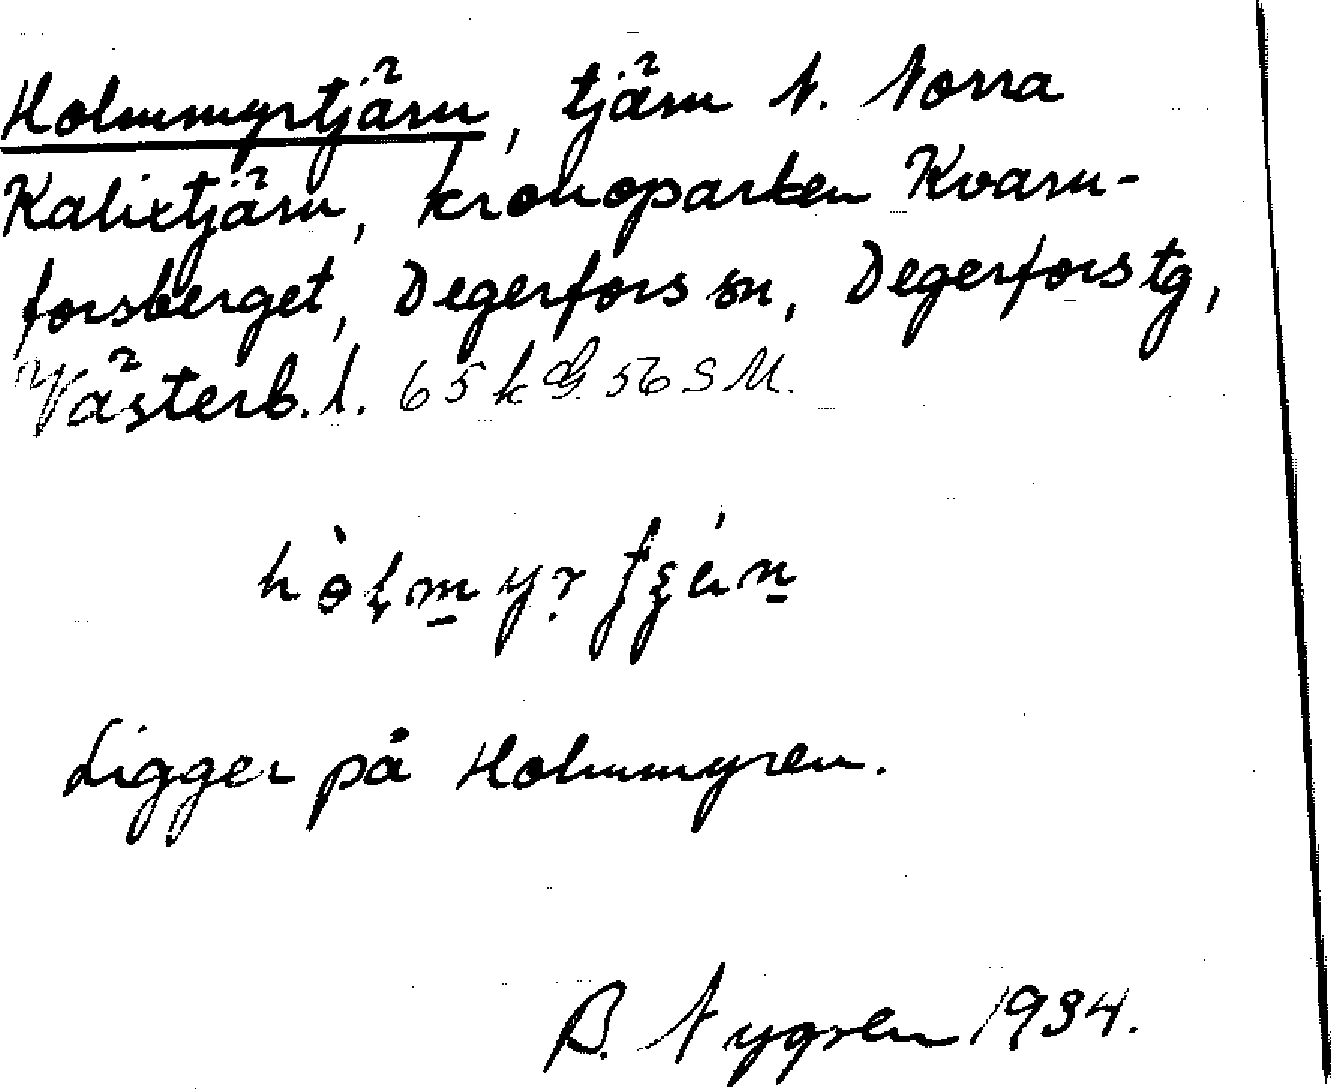 Holmmyrtjärn, tjärn N. Norra
Kalixtjärn, kronoparken Kvarn-
forsberget, Degerfors sn, Degerfors tg,
Västerb. l. 65 k G. 56 S M.
Ligger på Holmmyren.
B. Nygren 1934.